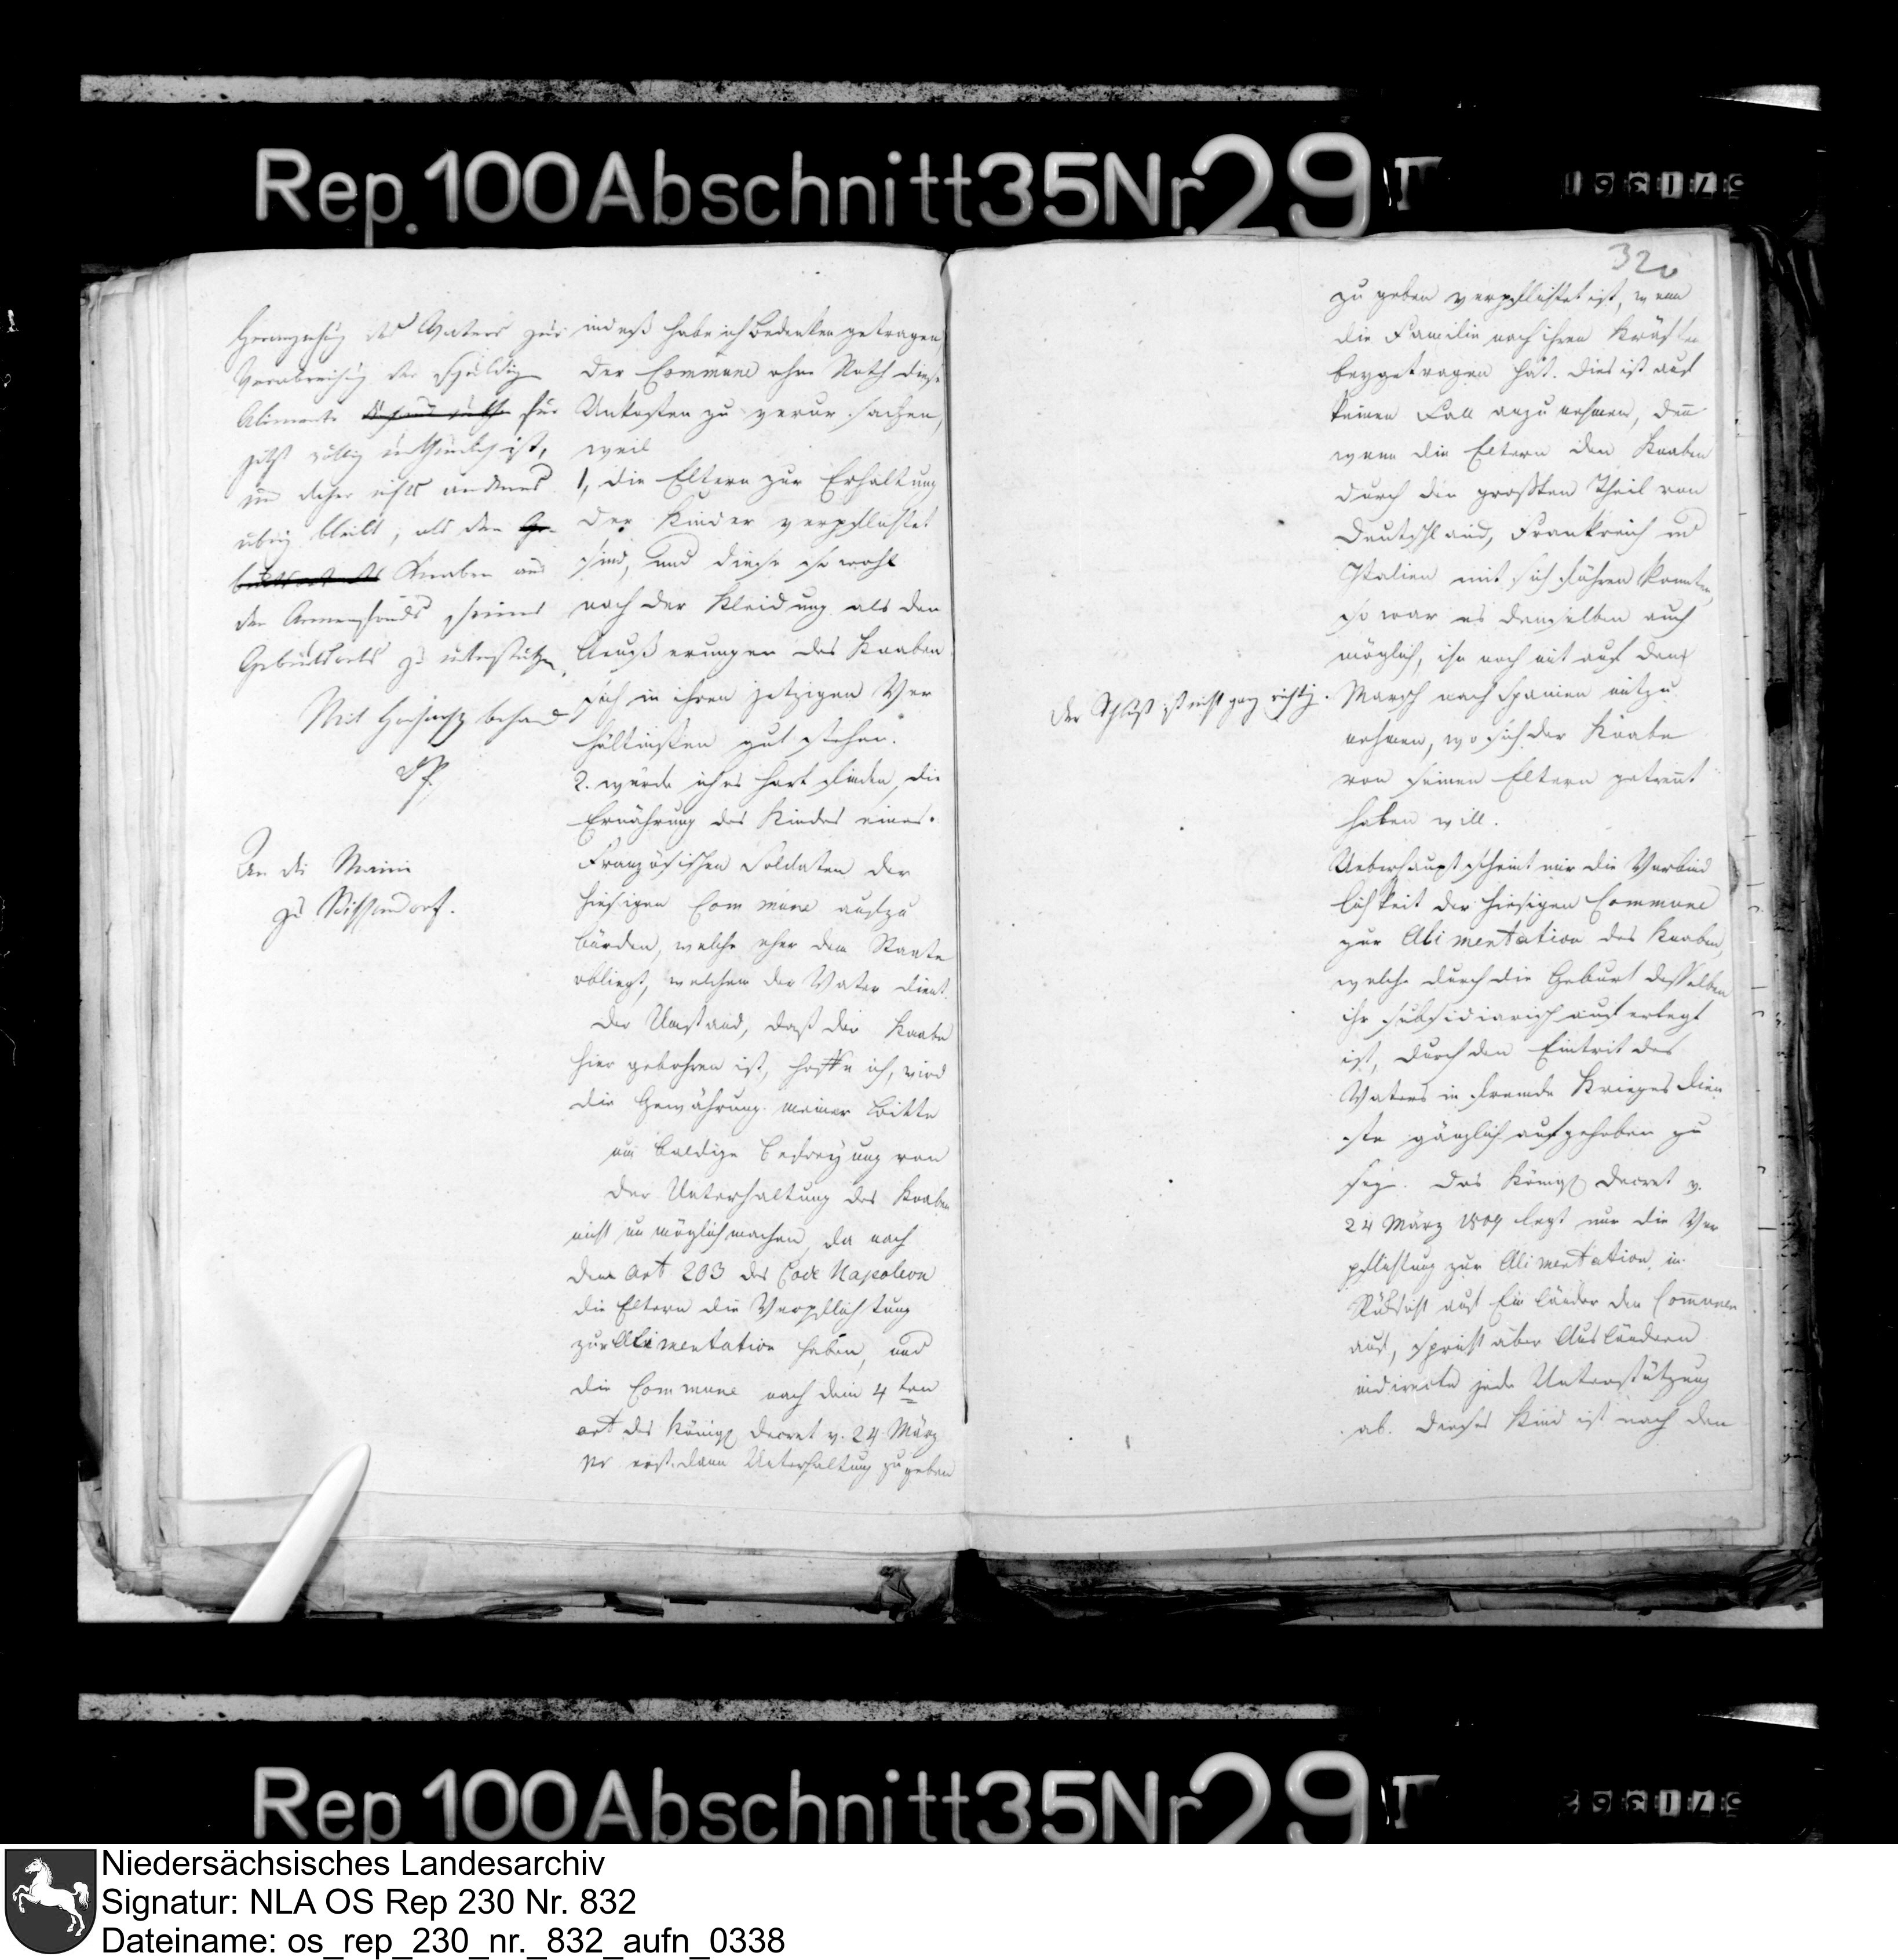 Rep. 100 Abschnitt 35 Nr. 29 I
320
des Vaters zur
Verabreichung der schuldigen
Alimente für
jetzt völlig unthunlich ist,
und daher nichts anderes
übrig bleibt, als den
Knaben aus
den Armenfonds seines
Geburtsorts zu unterstützen.
Mit Hochachtg
An die Mairie
zu Bissendorf.
indeß habe ich Bedenken getragen,
der Commune ohne Noth diese
Unkosten zu verursachen,
weil
1, die Eltern zur Erhaltung
der Kinder verpflichtet
sind, und diese so wohl
nach der Kleidung als den
Aeußerungen des Knaben
sich in ihren jetzigen Ver
hältnissen gut stehen.
2. würde ich es hart finden, die
Ernährung des Kindes eines
Französischen Soldaten der
hiesigen Commune aufzu
bürden, welche eher dem Staate
obliegt, welchem der Vater dient.
Der Umstand, daß der Knabe
hier gebohren ist, hoffe ich, wird
die Gewährung meiner Bitte
um baldige Befreyung von
der Unterhaltung des Knaben
nicht unmöglich machen, da nach
dem Art 203 des Code Napoleon
die Eltern die Verpflichtung
zur Alimentation haben, und
die Commune nach dem 4ten
art des Königl Decret v. 24 März
erst dann Unterhaltung zu geben
zu geben verpflichtet ist, wenn
die Familie nach ihren Kräften
beygetragen hat. Dies ist auf
keinen Fall anzunehmen, denn
wenn die Eltern den Knaben
durch den grosten Theil von
Deutschland, Frankreich und
Italien mit sich führen konnten,
so war es denselben auch
möglich, ihn noch mit auf dem
Marsch nach Spanien mitzu
nehmen, wo sich der Knabe
von seinen Eltern getrennt
haben will.
Der Schluß ist nicht ganz richtig.
Ueberhaupt scheint mir die Verbind
lichkeit der hiesigen Commune
zur Alimentation des Knaben,
welche durch die Geburt desselben
ihr subsidiarisch auferlegt
ist, durch den Eintrit des
Vaters in fremde Kriegesdien
ste gänzlich aufgehoben zu
seyn. Das Königl Decret v.
24 März 1809 legt nur die Ver
pflichtung zur Alimentation, in
Rücksicht auf Einländer den Communen
auf, spricht aber Ausländern
indirecte jede Unterstützung
ab. Dieses Kind ist nach dem
Rep. 100 Abschnitt 35 Nr. 29 I
Niedersächsisches Landesarchiv
Signatur: NLA OS Rep 230 Nr. 832
Dateiname: os_rep_230_nr._832_aufn_0338